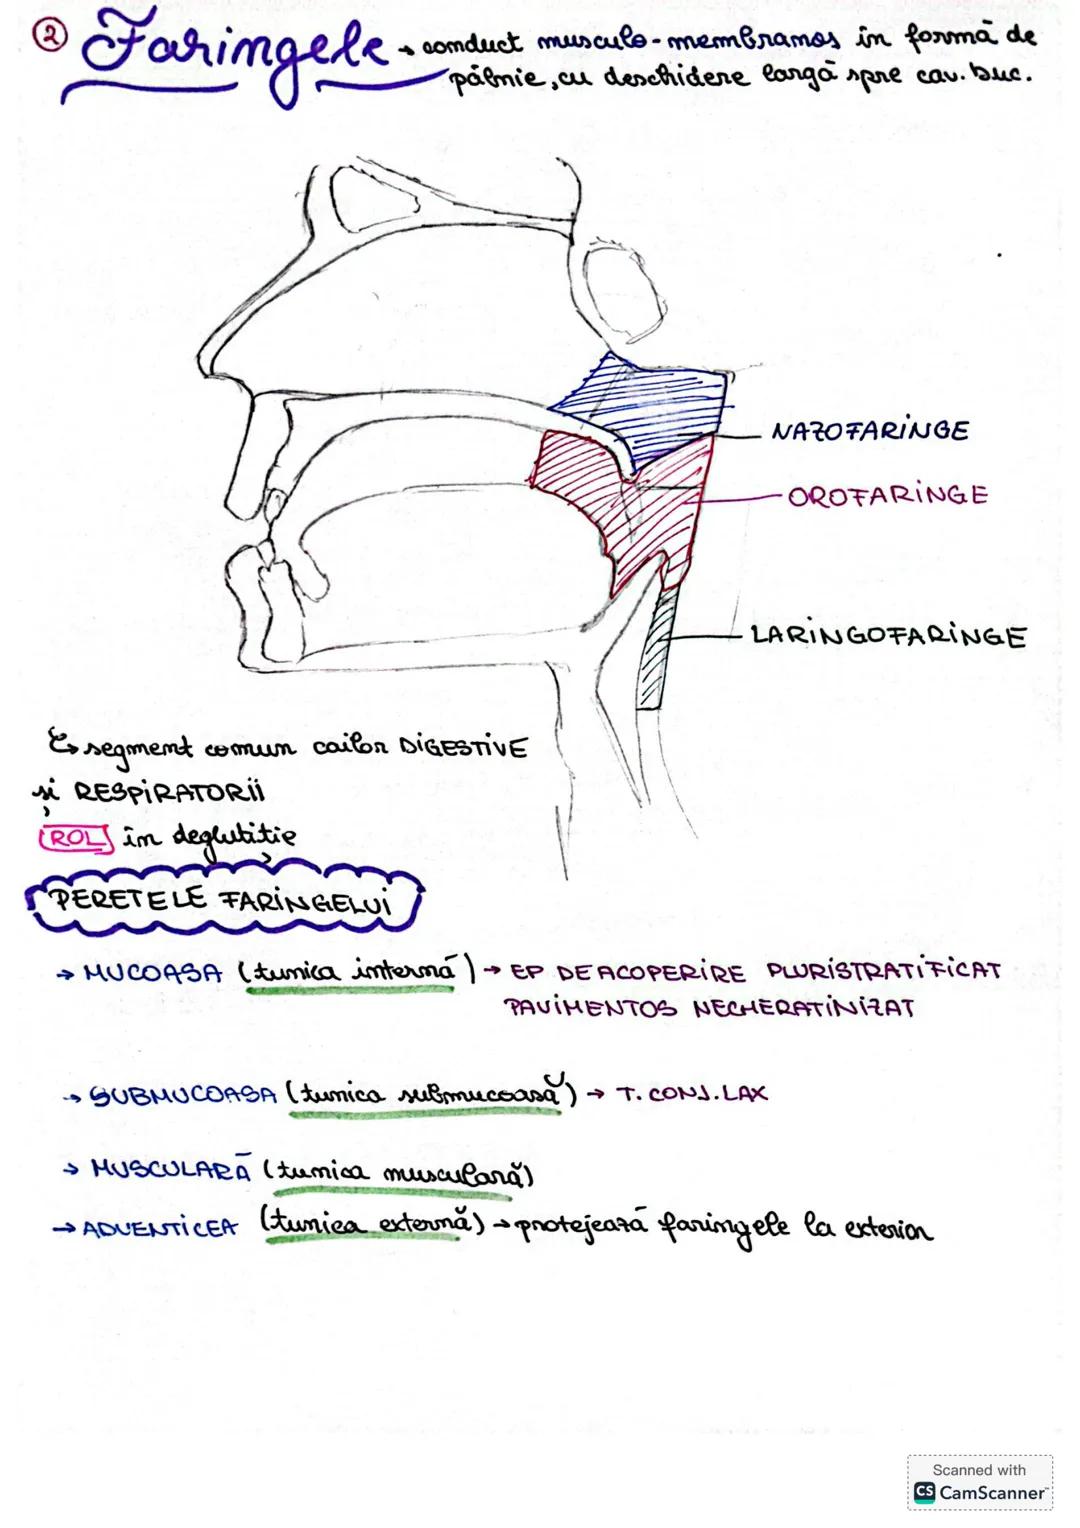 ② Faringele → conduct musculo-membranos în formă de
pâlnie, cu deschidere largă spre cav. buc.
NAZOFARINGE
OROFARINGE
LARINGOFARINGE
↳ segment comun cailor DIGESTIVE
și RESPIRATORII
ROL în deglutiție
PERETELE FARINGELUI
→ MUCOASA (tunica internă) → EP DE ACOPERIRE PLURISTRATIFICAT
PAVIMENTOS NECHERATINIZAT
→ SUBMUCOASA (tunica submucoasă) → T. CONJ. LAX
→ MUSCULARĂ (tunica musculară)
→ ADVENTICEA (tunica externă) → protejează faringele la exterior
Scanned with
CS CamScanner